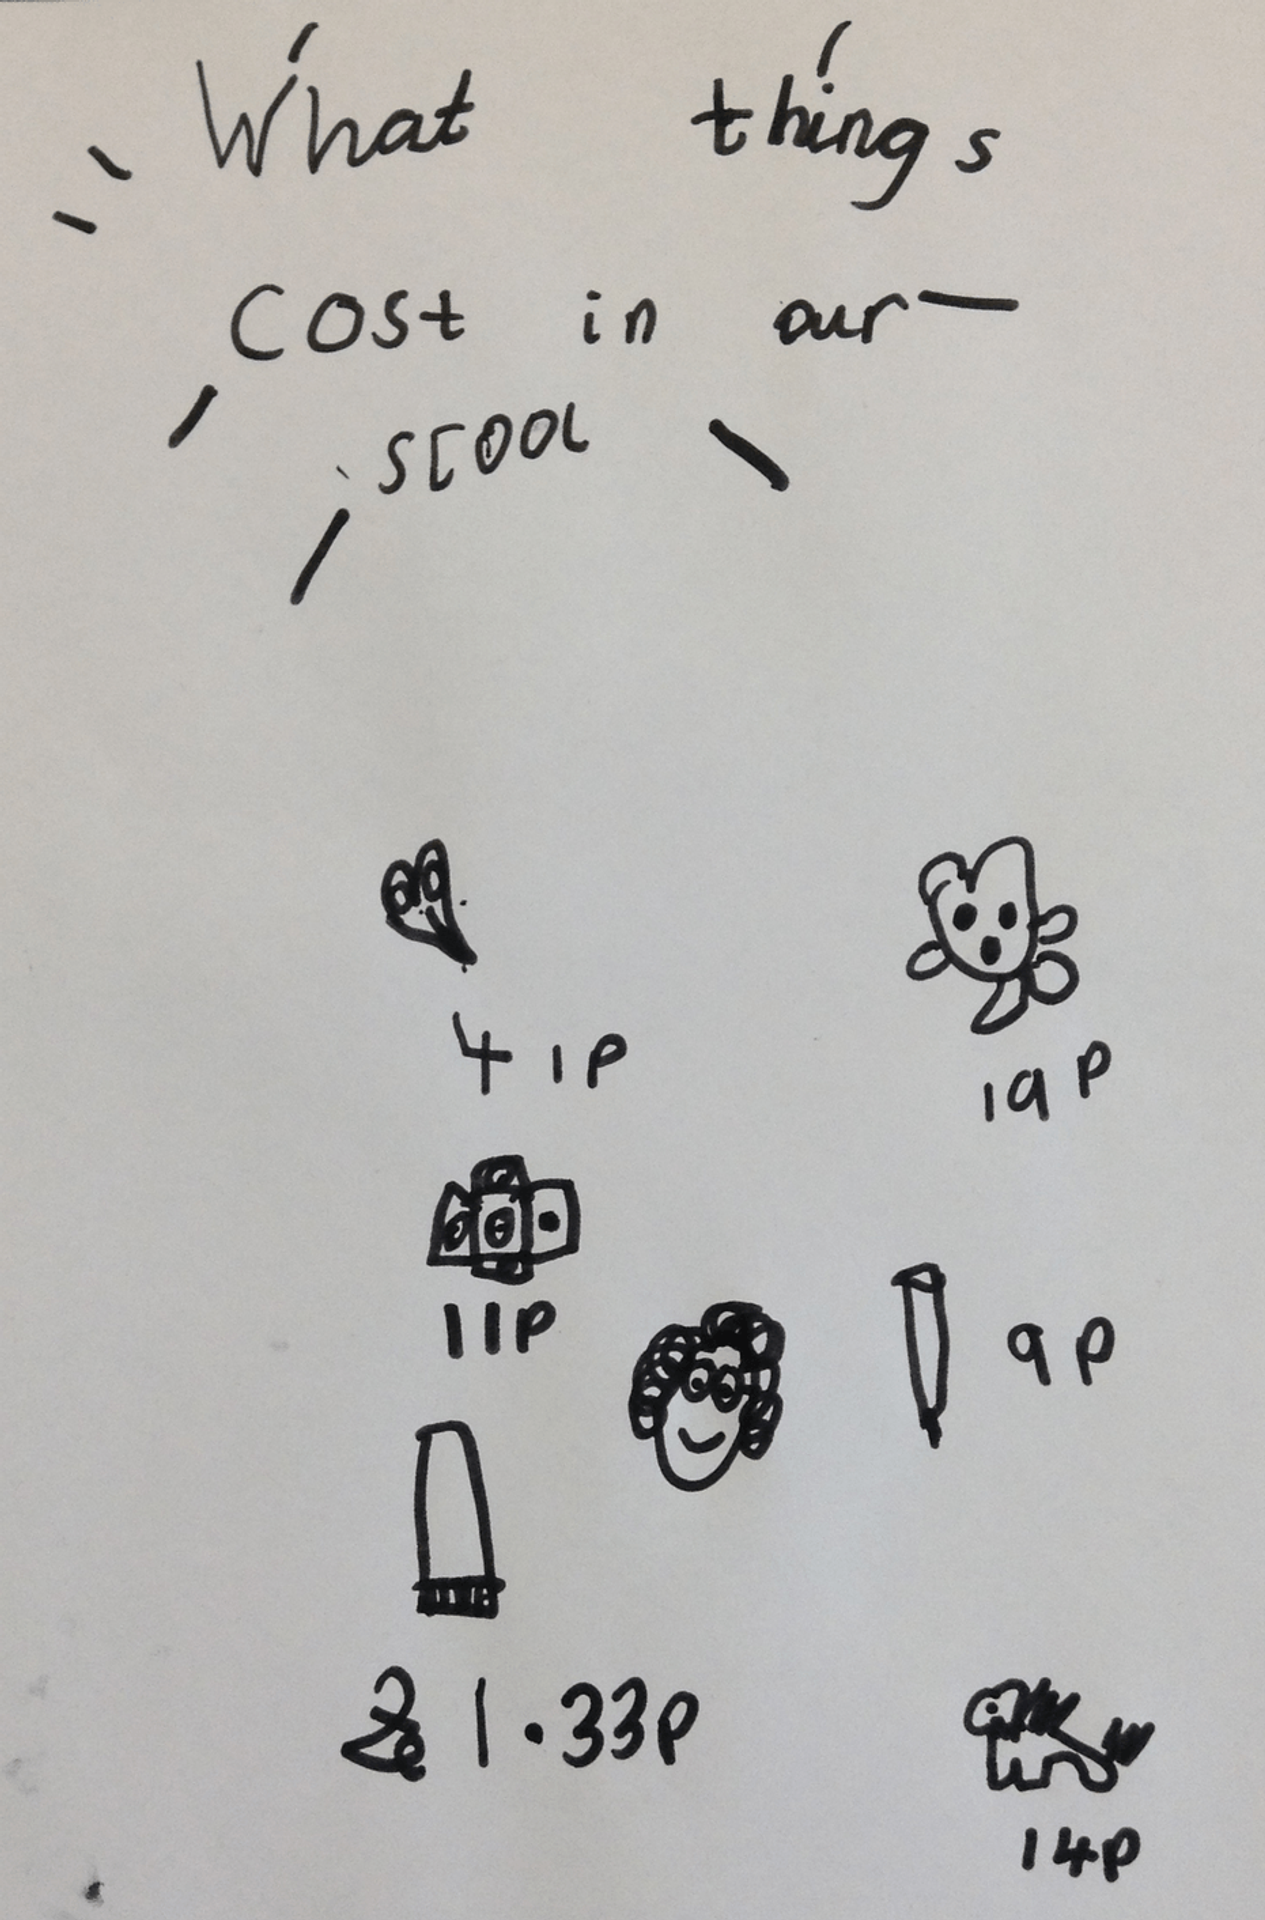 What things
cost in our
scool
41p
19p
11p
9p
£1.33p
14p